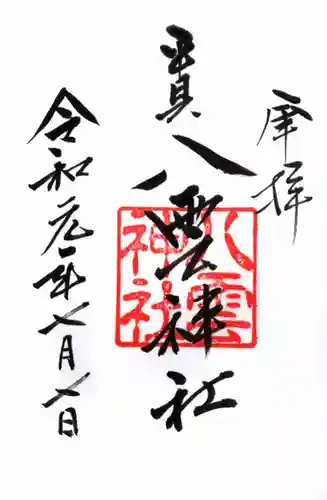 奉拝
貫八雲神社
八雲
神社
令和元年七月七日